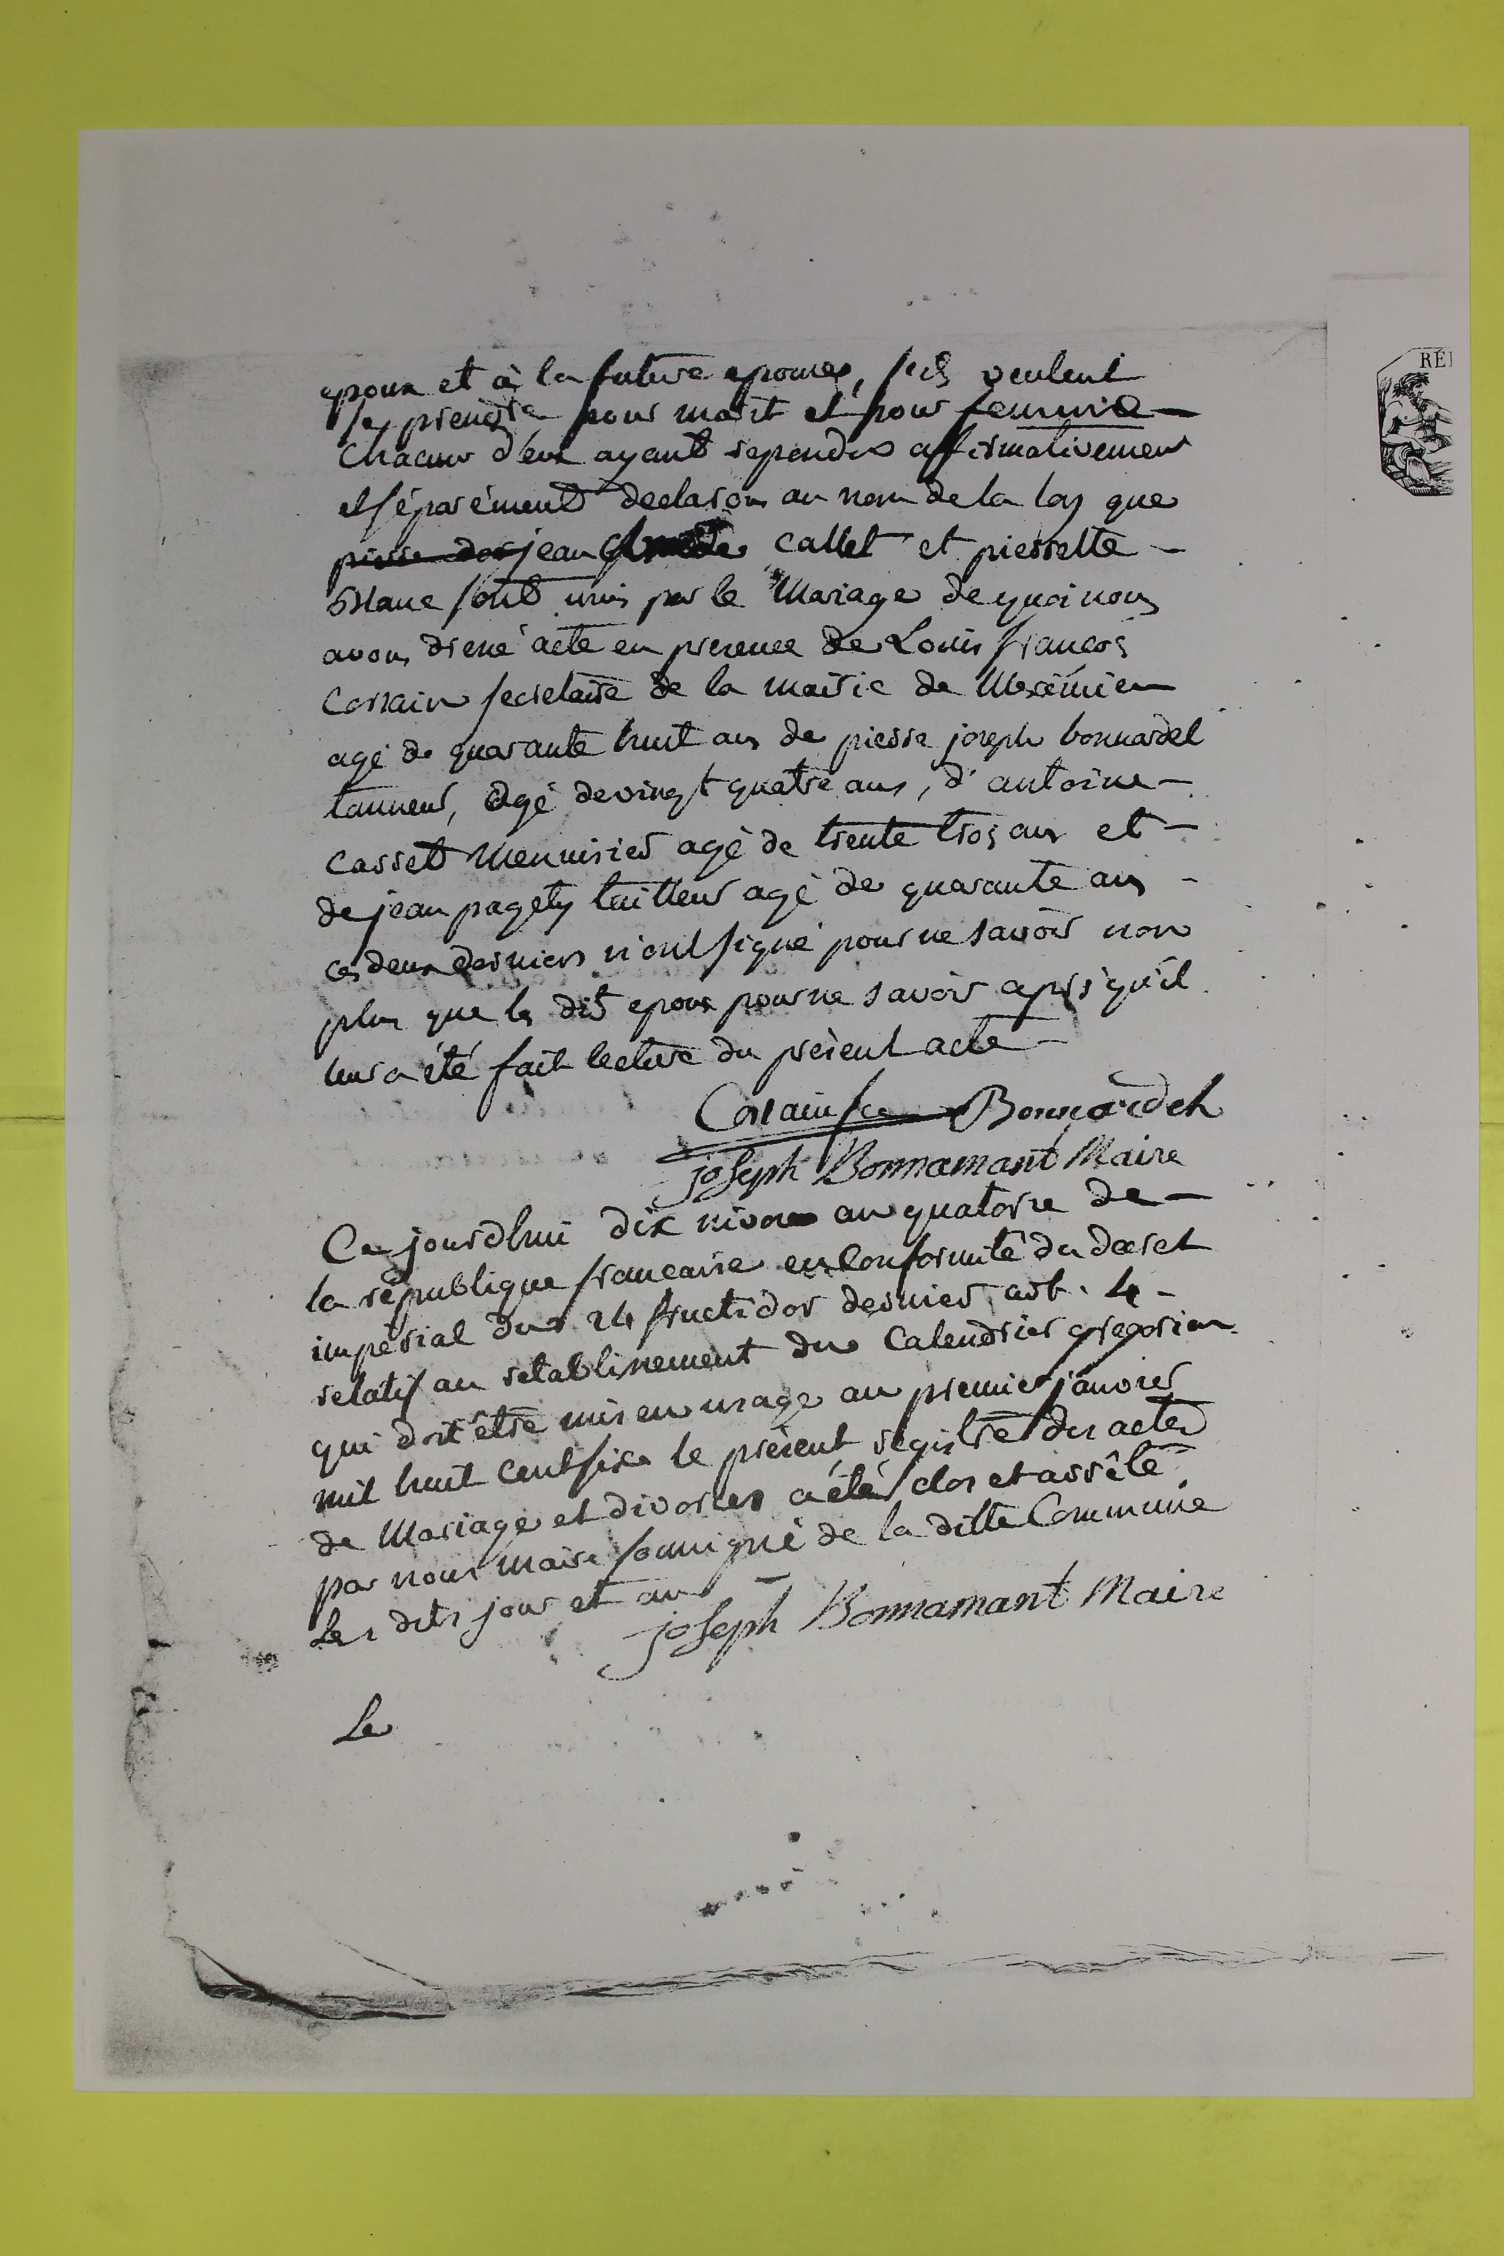 epoux et à la future epouse, s'ils veulent
se prendre pour marit et pour femme
Chacun d'eux ayant repondu affirmativement
et séparément declarons au nom de la loy que
pierre jean callet et pierrette
Blanc sont unis par le Mariage de quoi nous
avons dressé acte en presence de Louis françois
Corrain secretaire de la mairie de Meximieu
agé de quarante huit ans de pierre joseph bonnardel
tanneur, agé de vingt quatre ans, d'antoine
Casset Menuisier agé de trente trois ans et
de jean pagety tailleur agé de quarante ans
ces deux derniers n'ont signé pour ne savoir non
plus que les dits epoux pour ne savoir après qu'il
leur a été fait lecture du présent acte
Corrain sre Bonnardel
joseph Bonnamant Maire
Ce jourdhui dix nivose an quatorze de
la république francaise en Conformité du decret
impérial du 24 fructidor dernier art. 4
relatif au retablissement du Calendrier gregorien
qui doit être mis en usage au premier janvier
mil huit cent six le présent registre des actes
de Mariage et divorces a été clos et arrêté
par nous maire soussigné de la ditte Commune
Les dits jour et an
joseph Bonnamant Maire
Le
RÉ